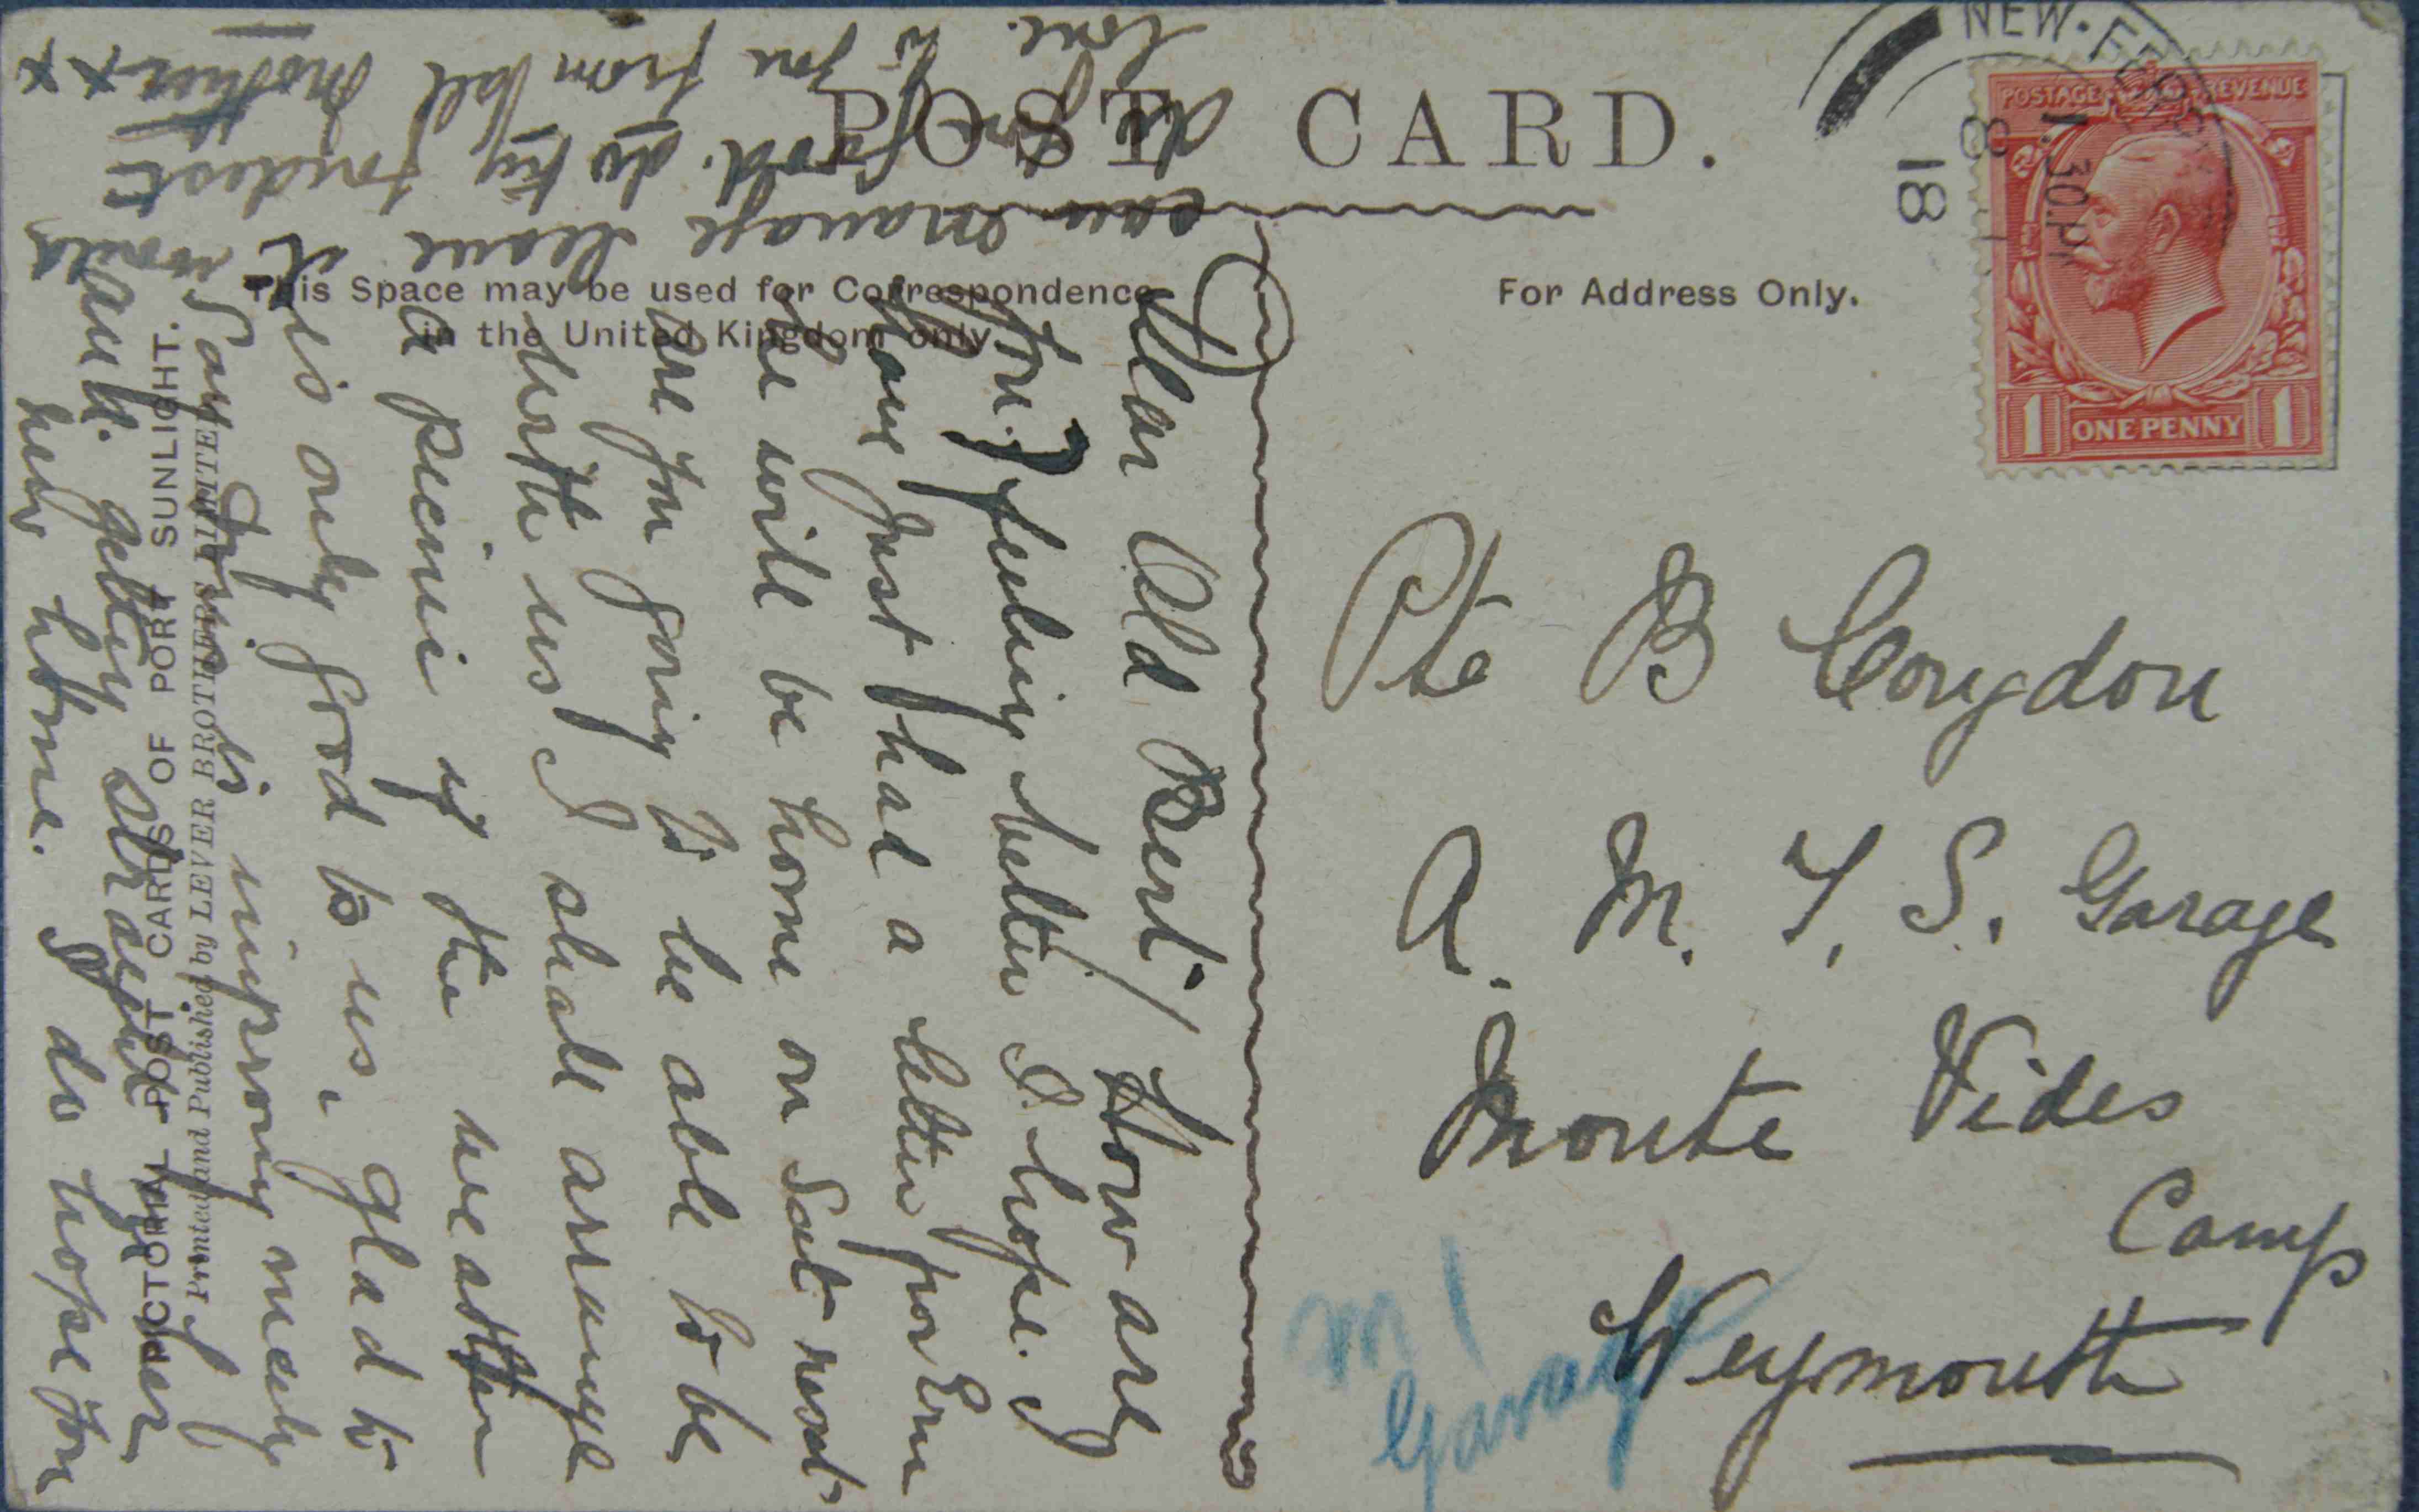 POST CARD.
This Space may be used for Correspondence
in the United Kingdom only.
For Address Only.
NEW FERRY
1.30 PM
8
18
POSTAGE REVENUE
1 ONE PENNY 1
Pte B Congdon
A. M. T. S. Garage
Monte Video
Camp
Weymouth
M T
Garage
Dear Old Bert/ How are
you? feeling better I hope. I
have just had a letter from Ern
he will be home on Sat next
are you going to be able to be
with us I shall arrange
a picnic if the weather
is only good to us, glad to
say is improving nicely
getting straight her
new home. I do hope you
can manage leave it would
be good. do try fondest
love. to you from all Mother xx
x
PICTORIAL POST CARDS OF PORT SUNLIGHT.
Printed and Published by LEVER BROTHERS LIMITED